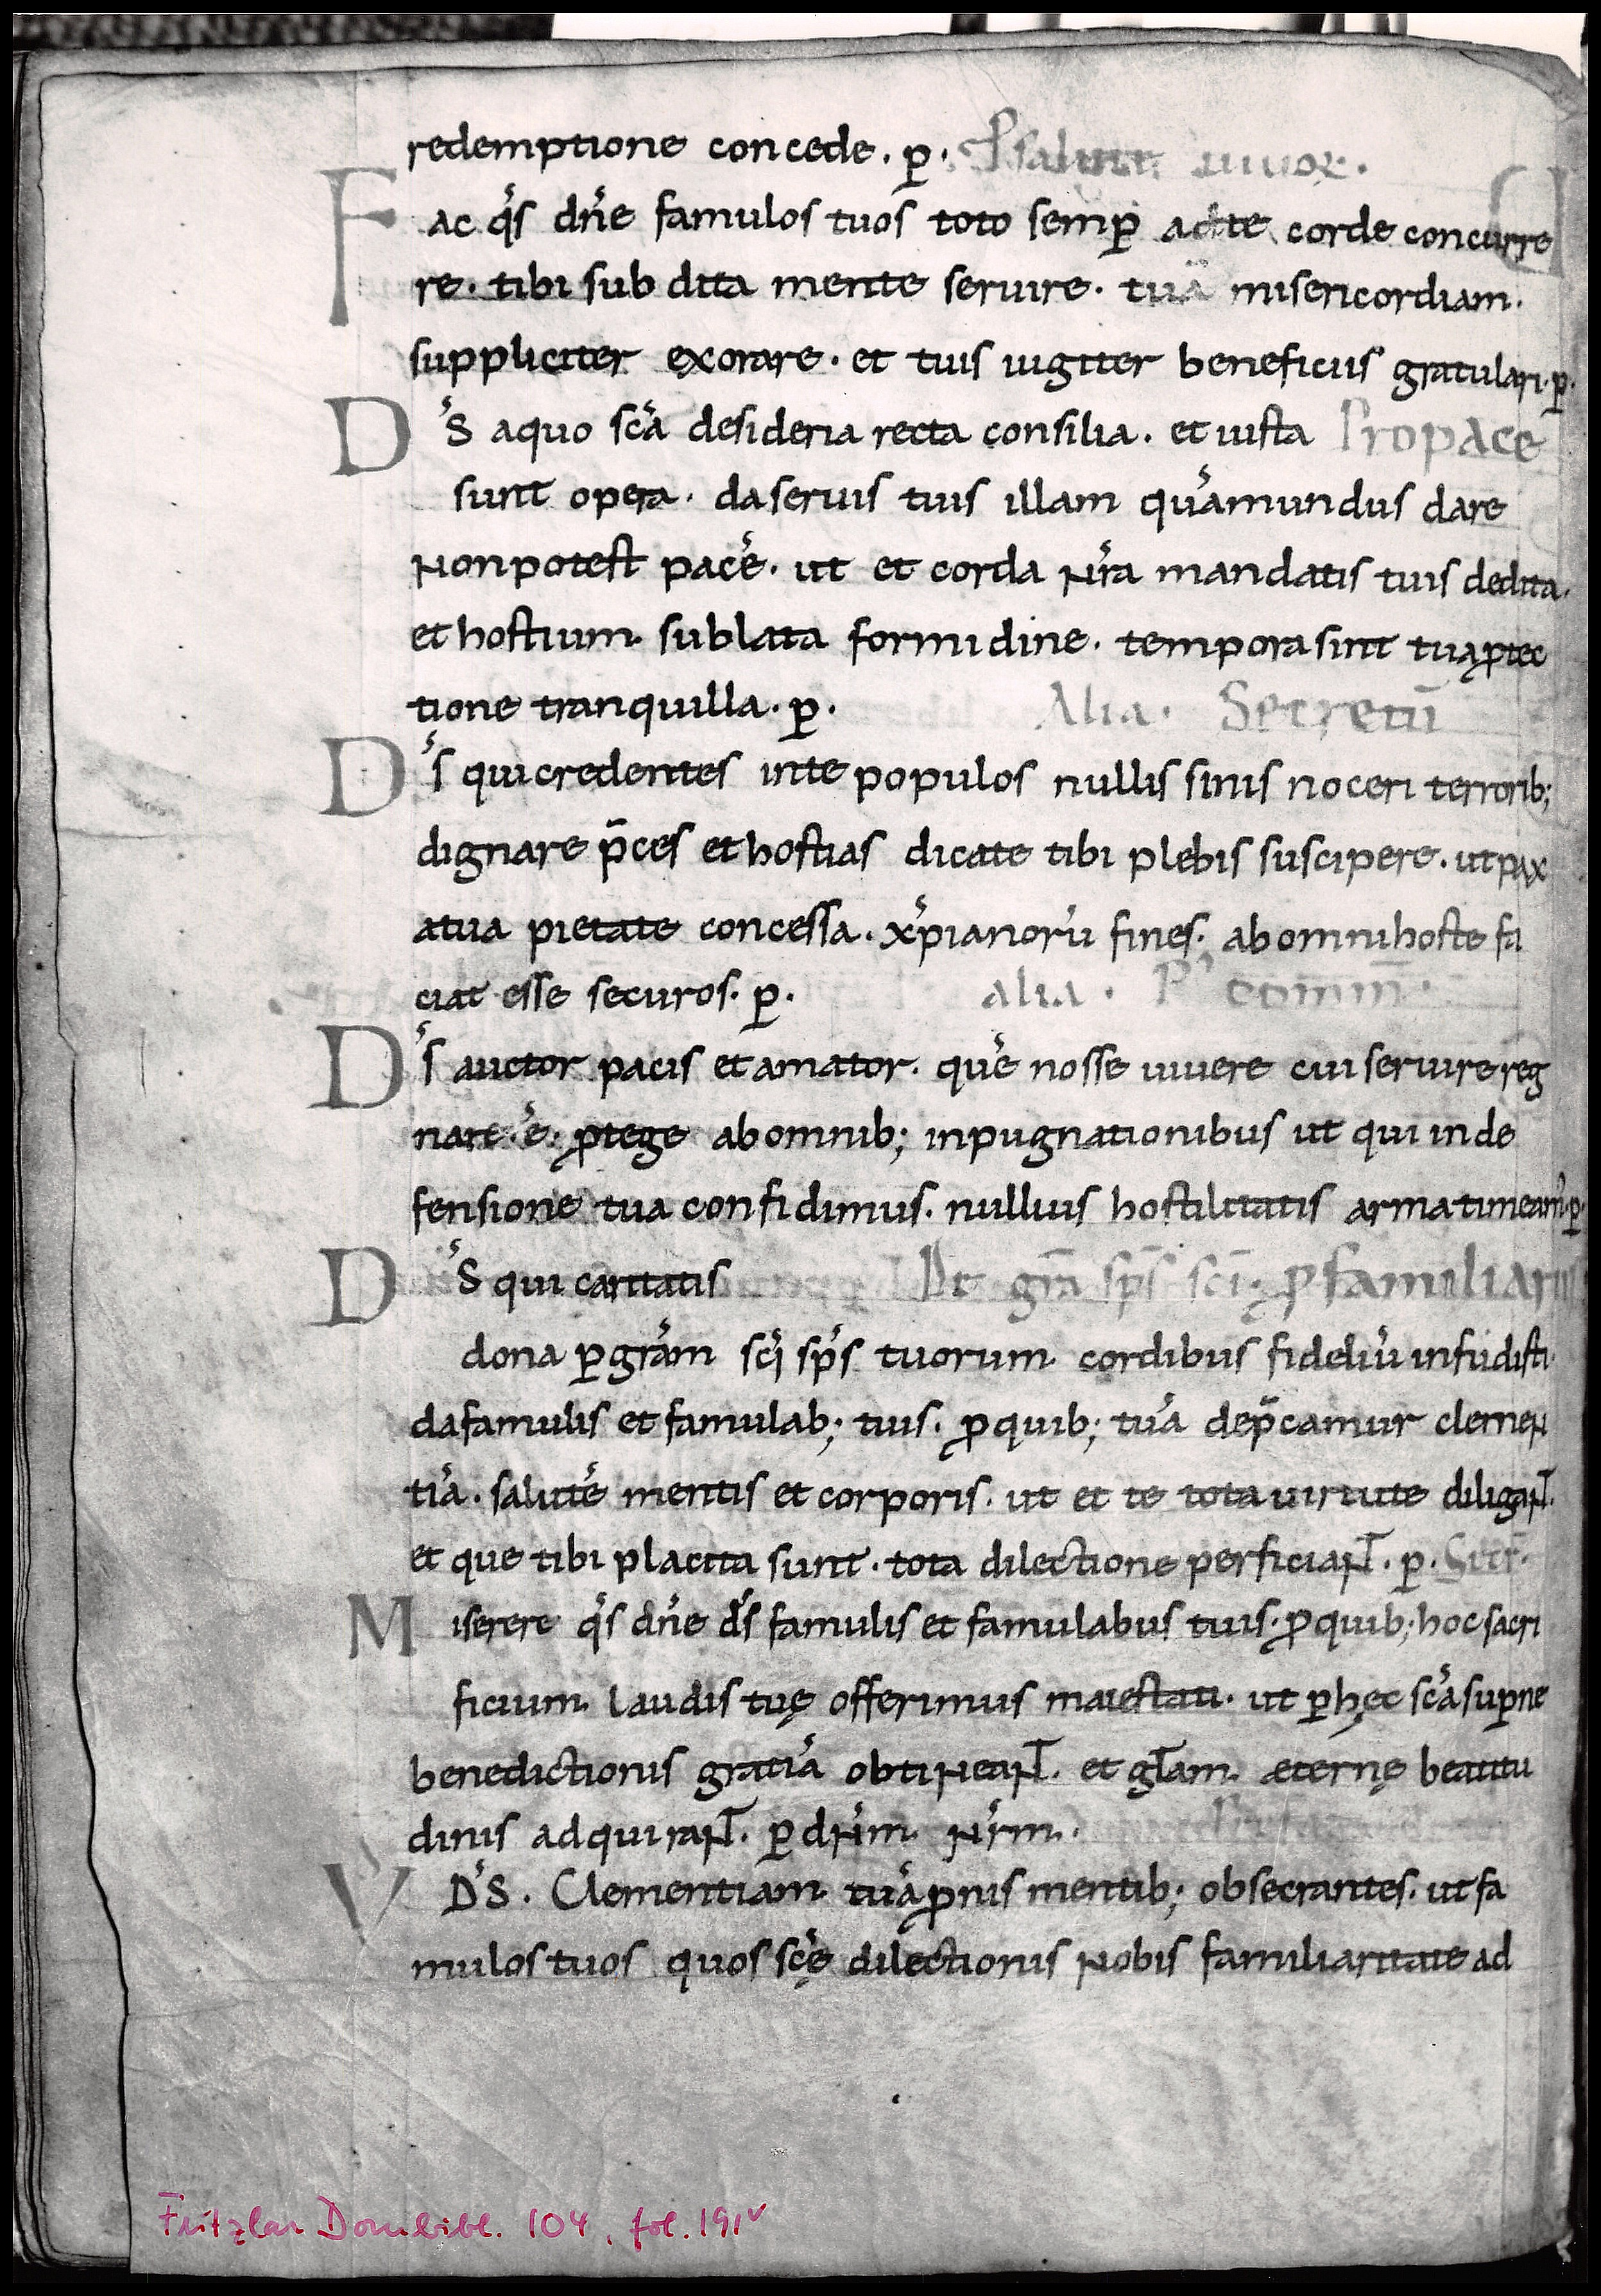 redemptione concede . ꝑ . P salute uiuoꝝ .
Fac q̃s dñe famulos tuos toto semꝑ adte corde concurre
re . tibi sub dita mente seruire . tuã misericordiam .
suppliciter exorare . et tuis iugiter beneficiis gratulari . ꝑ .
D̃S aquo scã desideria recta consilia . et iusta Propace
sunt opera . da seruis tuis illam quãmundus dare
nonpotest pacẽ . ut et corda nr̃a mandatis tuis dedita .
et hostium sublata formidine . tempora sint tua ꝓtec
tione tranquilla . ꝑ . Alia . Secretū
D̃s quicredentes inte populos nullis sinis noceri terrorib;
dignare p̄ces et hostias dicate tibi plebis suscipere . ut pax
atua pietate concessa . xp̃ianorũ fines . ab omnihoste fa
ciat esse securos . ꝑ . alia . P' comm̄ .
D̃s auctor pacis et amator . quẽ nosse uiuere cui seruire reg
nare . ẽ . ꝓtege ab omnib; inpugnationibus ut qui in de
fensione tua confidimus . nullius hostilitatis arma timeam' . ꝑ .
D̃S qui caritatis De gr̄a sp̄s sc̄i . ꝓ familiarib
dona ꝑ grãm scĩ sp̃s tuorum cordibus fideliũ infudisti .
da famulis et famulab; tuis . ꝓ quib; tuã dep̄camur clemen
tiã . salutẽ mentis et corporis . ut et te tota uirtute diligant .
et que tibi placita sunt . tota dilectione perficiant . ꝑ . Secr̄ .
Miserere q̃s dñe d̃s famulis et famulabus tuis . ꝓ quib; hoc sacri
ficium laudis tuę offerimus maiestati . ut ꝑ hęc scã suꝑne
benedictionis gratiã obtineant . et gl̄am æternę beatitu
dinis adquirant . ꝑ dñm nr̃m .
V D̃S . Clementiam tuã ꝓnis mentib; obsecrantes . ut fa
mulos tuos quos scẽ dilectionis nobis familiaritate ad
Fritzlar Dombibl. 104, fol. 191v